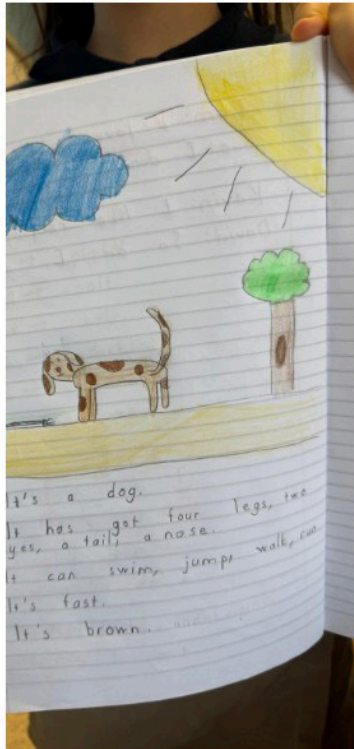 It's a dog.
It has got four legs, two
yes, a tail, a nose.
It can swim, jump, walk, run.
It's fast.
It's brown.